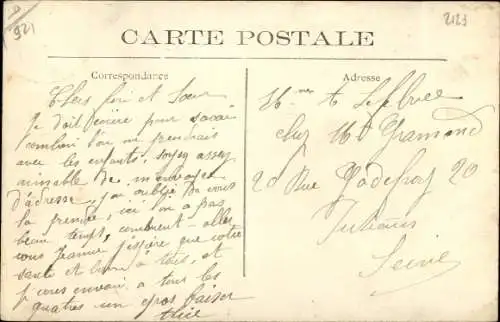 921
2123
CARTE POSTALE
Correspondance
Adresse
Chers frère et Sœur
Je doit écrire pour savoir
combien l'on me prendrais
avec les enfants, soyez assez
aimable de m'envoyer
d'adresse, j'ai oublié de vous
la prendre, ici l'on a pas
beau temps, comment allez
vous Jeanne j'éspère que votre
santé et bonne à tous, et
je vous envoie à tous les
quatres un gros baiser
Alice
A Lefebvre
chez Mr Gramond
20 Rue Godefroy 20
Puteaux
Seine